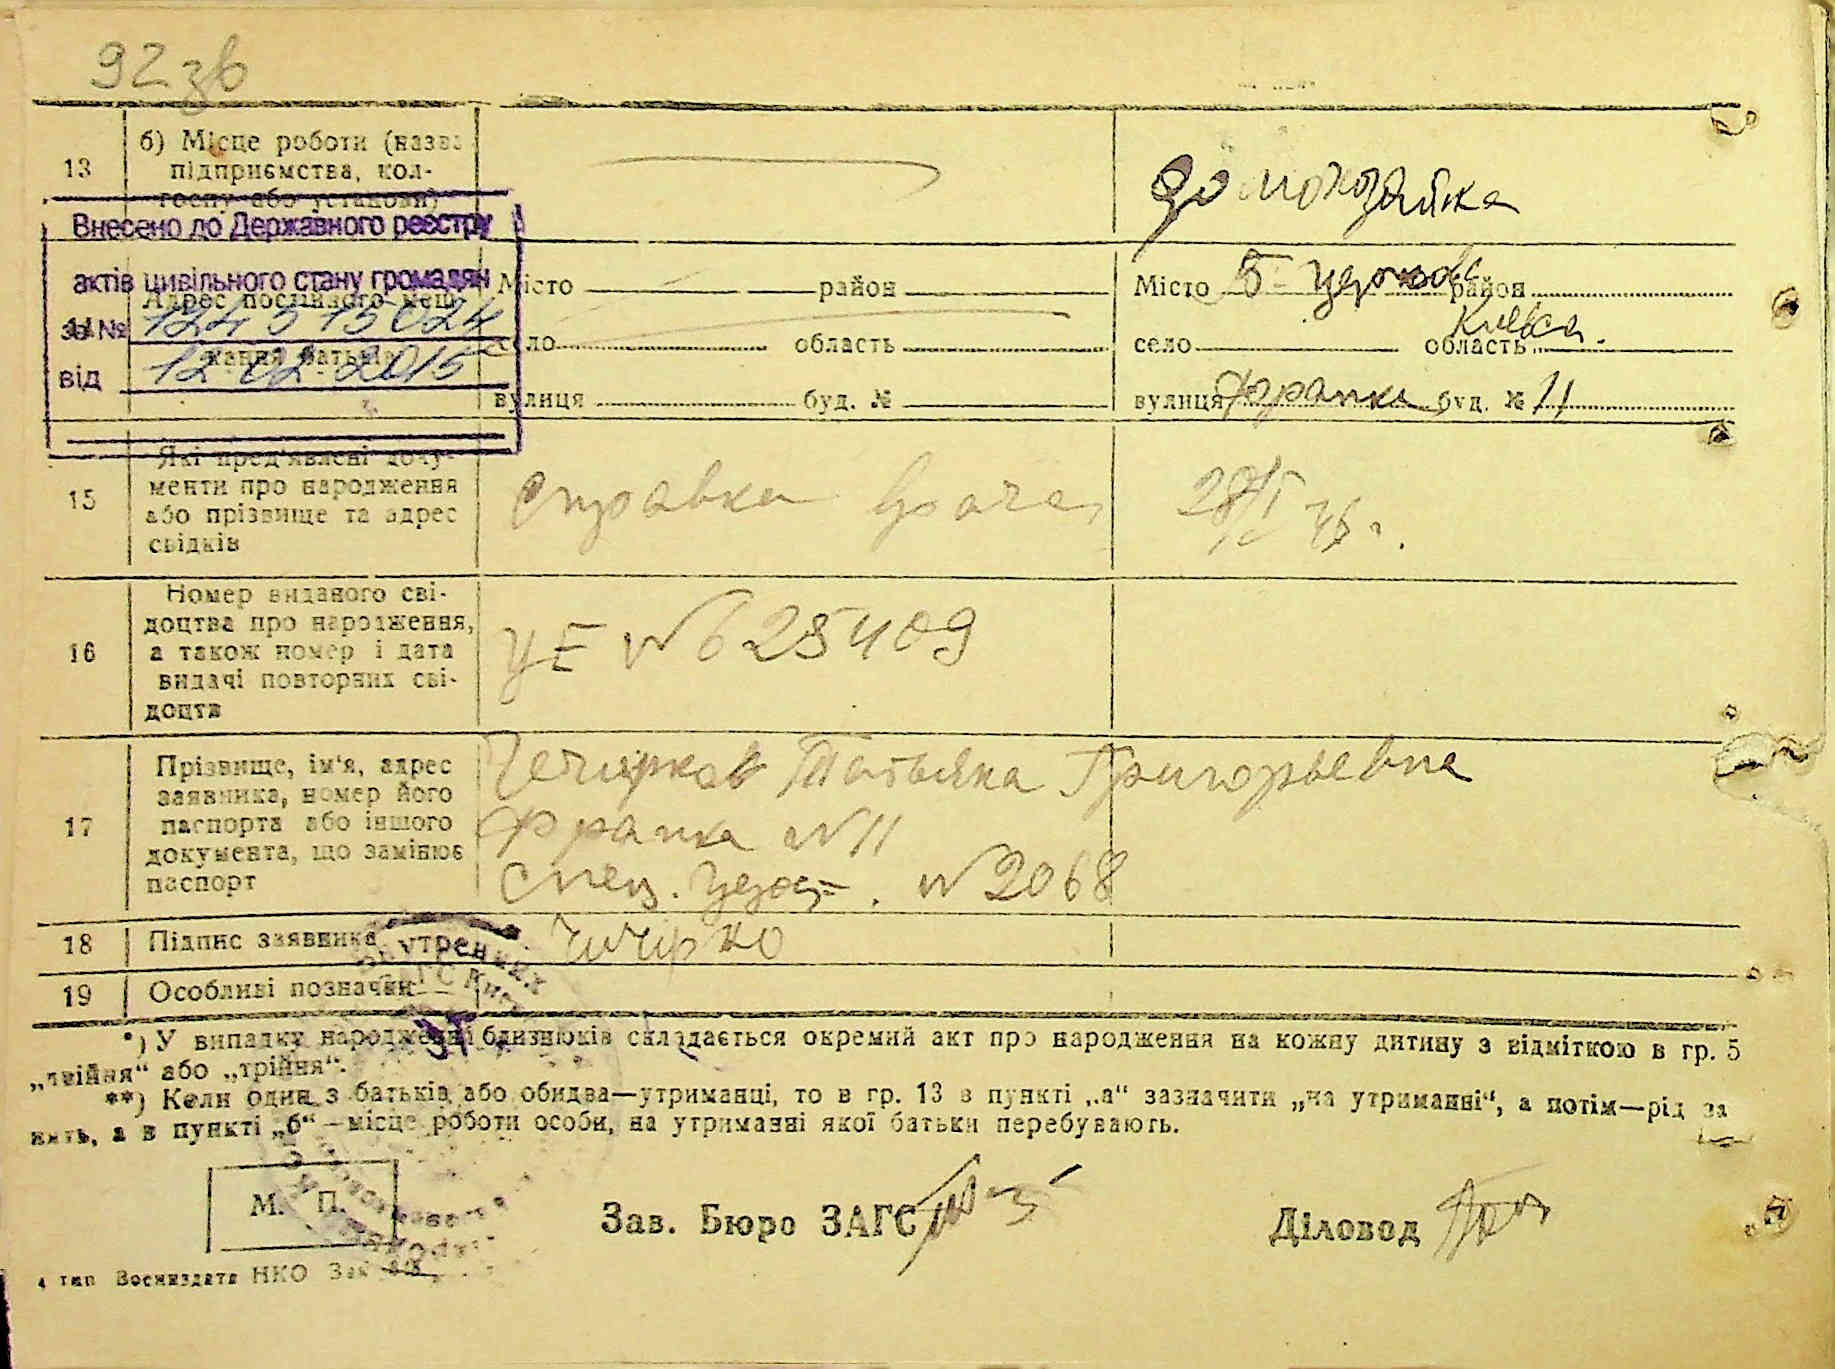 92 зв
13
б) Місце роботи (назва
підприємства, кол-
госпу або установи)
домохозяйка
Внесено до Державного реєстру
актів цивільного стану громадян
за № 124 5 15 024
від 12 02 2015
Адрес постійного меш-
кання батьків
Місто район
село область
вулиця буд. №
Місто Б-Церков район
село область Київск.
вулиця Франка буд. № 11
15
Які пред'явлені доку-
менти про народження
або прізвище та адрес
свідків
справка врача
16
Номер виданого сві-
доцтва про народження,
а також номер і дата
видачі повторних сві-
доцтв
№ 625409
17
Прізвище, ім'я, адрес
заявника, номер його
паспорта або іншого
документа, що замінює
паспорт
Татьяна Григорьевна
Франка № 11
№ 2068
18 Підпис заявника
19 Особливі позначки
*) У випадку народженні близнюків складається окремий акт про народження на кожну дитину з відміткою в гр. 5
„двійня“ або „трійня“.
**) Коли один з батьків або обидва—утриманці, то в гр. 13 в пункті „а“ зазначити „на утриманні“, а потім—рід за
нять, а в пункті „б“—місце роботи особи, на утриманні якої батьки перебувають.
М. П.
Зав. Бюро ЗАГС
Діловод
4 тип Воениздата НКО Зак